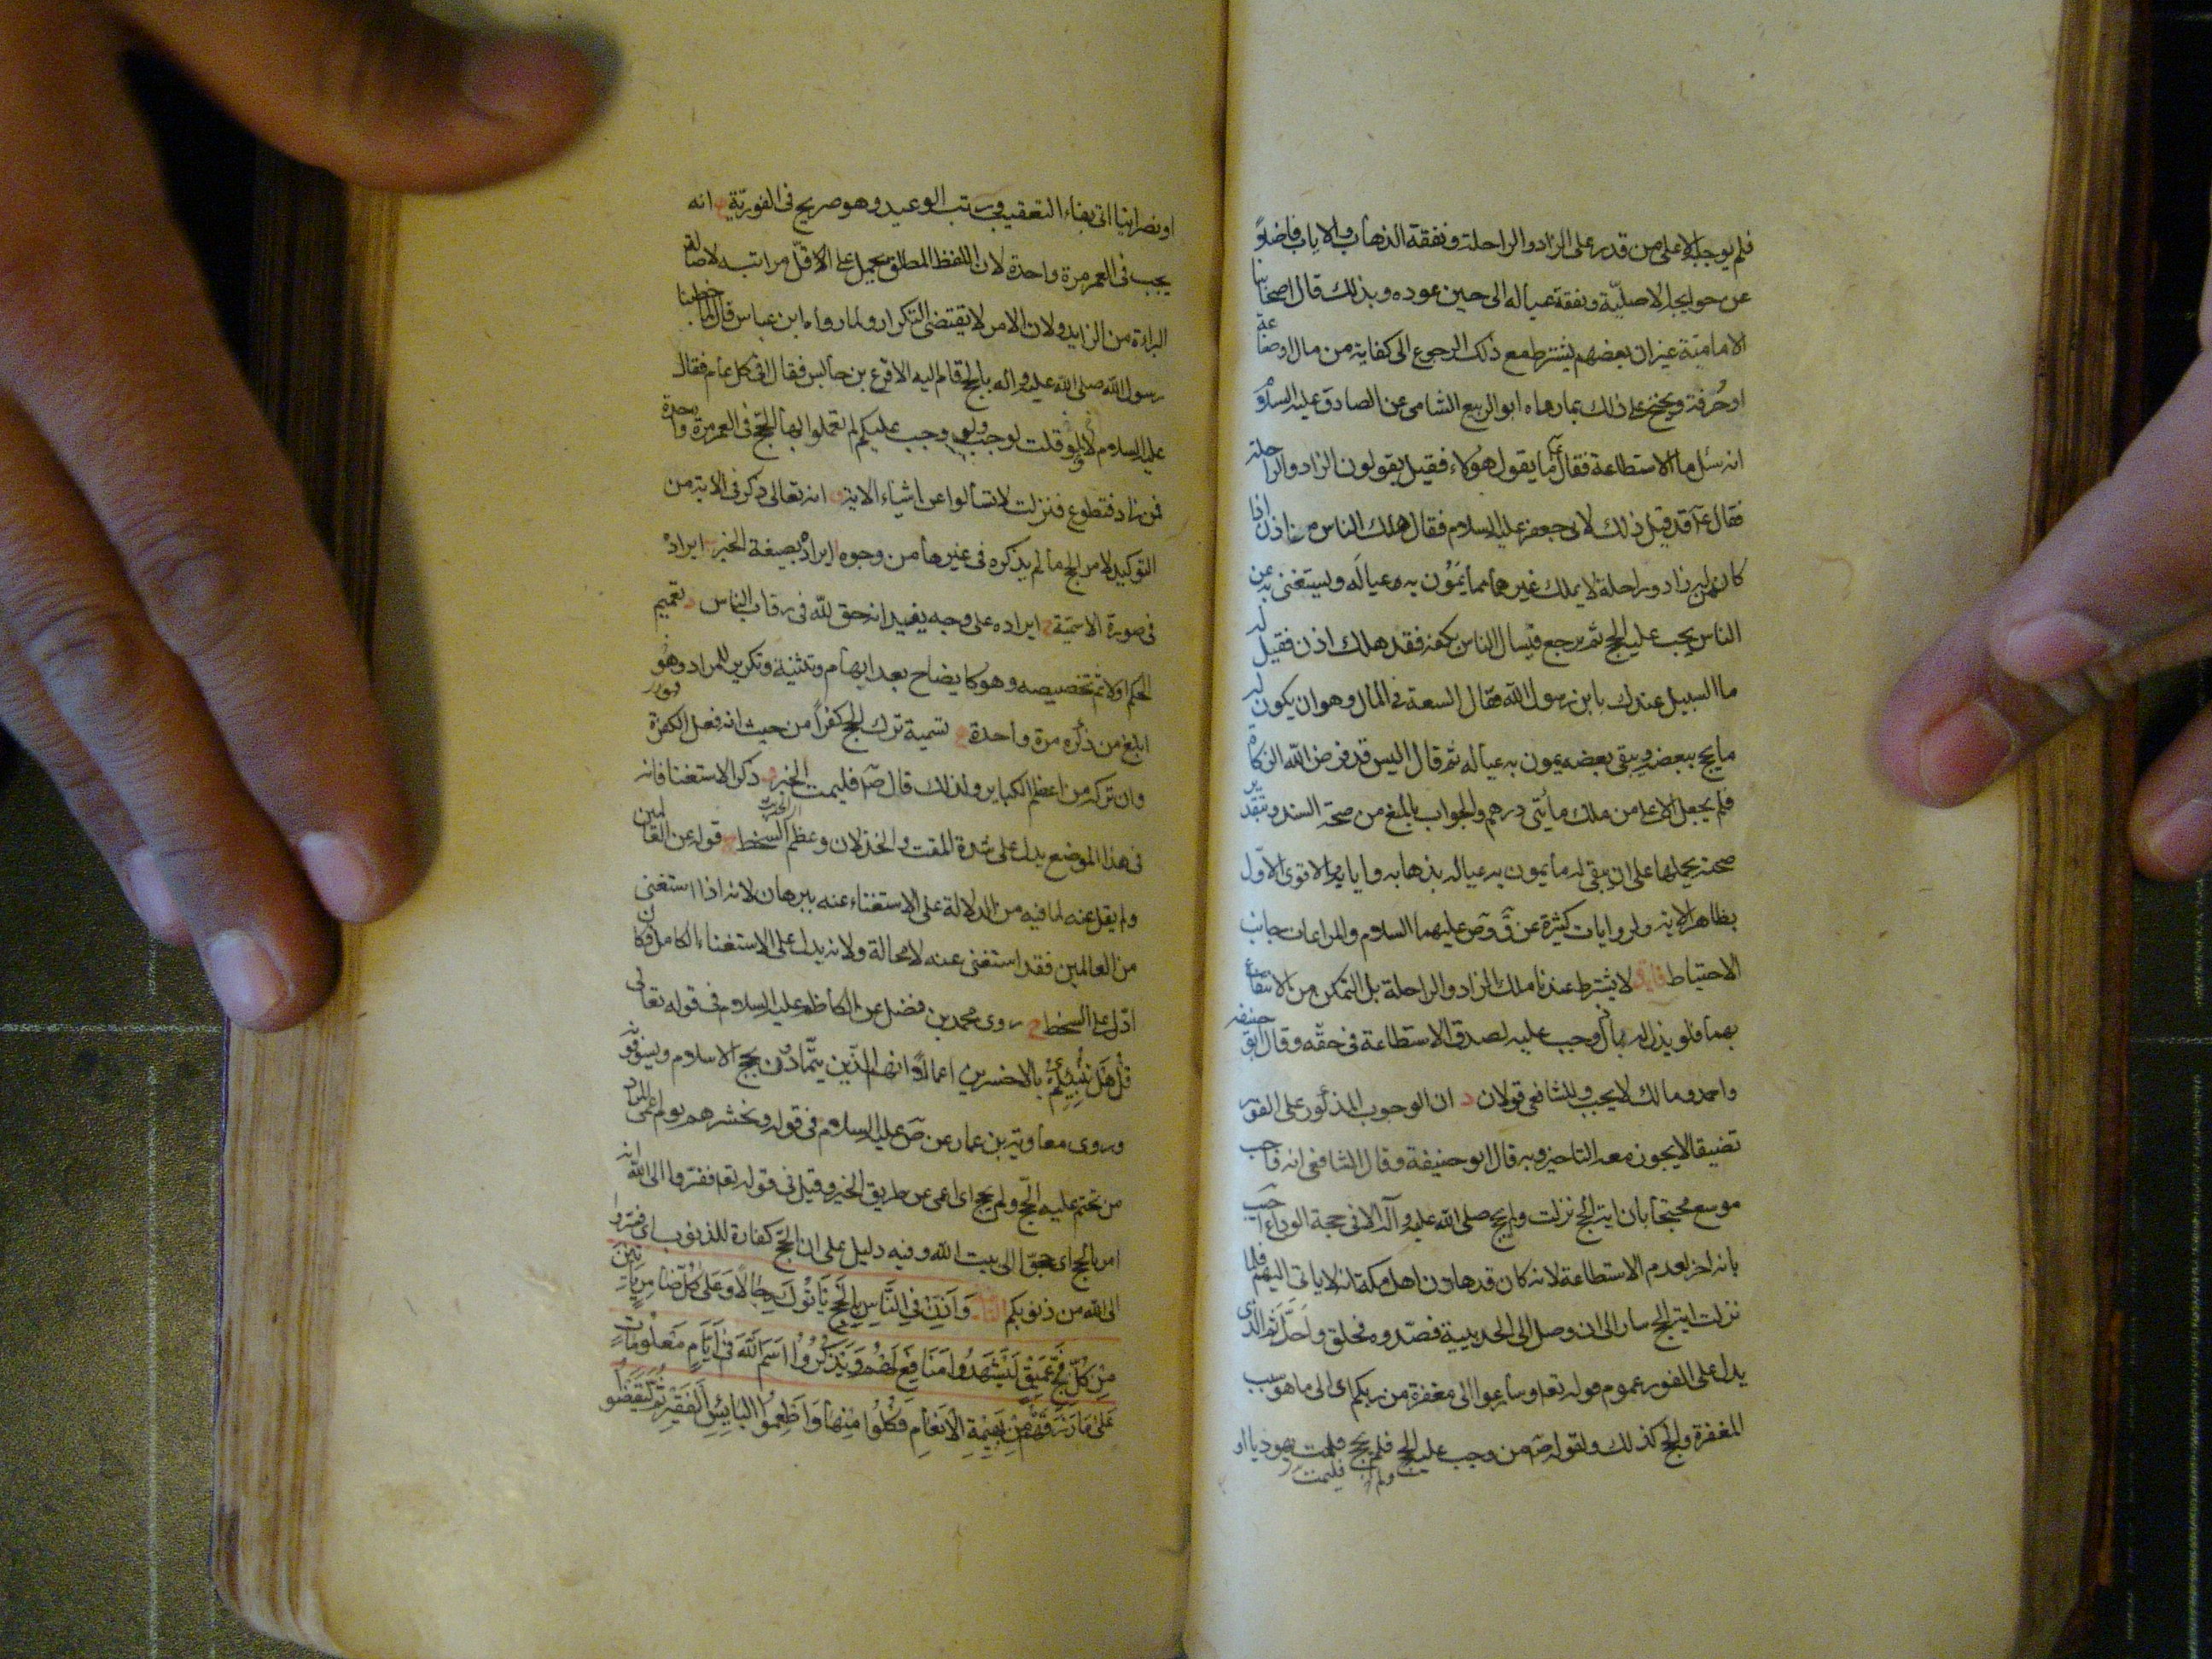 فلم يوجبه الا على من قدر على الزاد والراحلة ونفقة الذهاب والاياب فاضلاً
عن حوايجه الاصليّة ونفقة عياله الى حين عوده وبذلك قال اصحابنا
الاماميّة غير ان بعضهم يشترط مع ذلك الرجوع الى كفاية من مال او صناعة
او حُرفة ويحتج على ذلك بما رواه ابو الربيع الشامى عن الصادق عليه السلام
انه سئل ما الاستطاعة فقال ما يقول هؤلاء فقيل يقولون الزاد والراحلة
فقال ع قد قيل ذلك لابى جعفر عليه السلام فقال هلك الناس اذن اذا
كان من له زاد وراحلة لا يملك غيرهما مما يمؤن به عياله ويستغنى به عن
الناس يجب عليه الحج ثم يرجع فيسال الناس بكفه فقد هلك اذن فقيل له
ما السبيل عندك يا بن رسول الله فقال السعة فى المال وهو ان يكون له
ما يحج ببعضه ويبقى بعضه يمون به عياله ثم قال اليس قد فرض الله الزكاة
فلم يجعل الا على من ملك مأتى درهم والجواب بالمنع من صحة السند وبتقدير
صحته يحملها على ان يبقى له ما يمون به عياله بذهابه وايابه والاقوى الاوّل
بظاهر الاية ولروايات كثيرة عن ق و ص عليهما السلام والمراعات جانب
الاحتياط لا يشترط عندنا ملك الزاد والراحلة بل التمكن من الانتفاع
بهما فلو بذل له باذل وجب عليه لصدق الاستطاعة فى حقه وقال ابو حنيفه
واحمد ومالك لا يجب وللشافعى قولان د ان الوجوب المذكور على الفور
تضييقا لا يجوز معه التاخير وبه قال ابو حنيفة وقال الشافعى انه واجب
موسع محتجّا بان اية الحج نزلت ولم يحج صلى الله عليه وآله الا فى حجة الوداع اجيب
بانه اخر لعدم الاستطاعة لانه كان قد هادن اهل مكة انه لا ياتى اليهم فلما
نزلت اية الحج سار الى ان وصل الى الحديبية فصدّوه فحلق واحلّ ثم الذى
يدل على الفور عموم قوله تعا وسارعوا الى مغفرة من ربكم اى الى ما هو سبب
المغفرة والحج كذلك ولقوله ص من وجب عليه الحج فلم يحج فليمت يهوديا او
ولم فليمت
او نصرانيا اتى بفاء التعقيب ورتب الوعيد وهو صريح فى الفوريّة ه انه
يجب فى العمر مرة واحدة لان اللفظ المطلق يحمل على الاقلّ مراتبه لاصالة
البراءة من الزايد ولان الامر لا يقتضى التكرار ولما رواه ابن عباس قال لما خطبنا
رسول الله صلى الله عليه واله بالحج قام اليه الاقرع بن حابس فقال افى كل عام فقال
عليه السلام لا ولو قلت لوجب ولو وجب عليكم لم تعملوا بها الحجّ فى العمر مرة واحدة
فمن زاد فتطوع فنزلت لا تسألوا عن اشياء الاية و انه تعالى ذكر فى الاية من
التوكيد لامر الحج ما لم يذكره فى غيرها من وجوه ا ايراده بصيغة الخبر ب ايراده
فى صورة الاسميّة ج ايراده على وجه يفيد انه حق لله فى رقاب الناس د تعميم
الحكم اولا ثم تخصيصه وهو كايضاح بعد ايهام وتثنية وتكرير للمراد وهو
ابلغ من ذكره مرة واحدة ه تسمية ترك الحج كفراً من حيث انه فعل الكفرة
وان تركه من اعظم الكباير ولذلك قال ص فليمت الخبر و ذكر الاستغنا فانه
فى هذا الموضع يدل على شدة المقت والخذلان وعظم السخط ز قوله عن العالمين
ولم يقل عنه لما فيه من الدلالة على الاستغناء عنه ببرهان لانه اذا استغنى
من العالمين فقد استغنى عنه لا محالة ولانه يدل على الاستغناء الكامل فكان
ادّل على السخط ح روى محمد بن فضل عن الكاظم عليه السلام فى قوله تعالى
قُل هَل نُنَبِّئكُم بالاخسرين اعمالاً انهم الذين يتمّادون بحج الاسلام ويسوفونه
وروى معاوية بن عمار عن ص عليه السلام فى قوله ونحشرهم يوم اعمى المراد
من تحتم عليه الحجّ ولم يحج اى اعمى عن طريق الخير وقيل فى قوله تعا ففروا الى الله انه
امر بالحج اى حجّوا الى بيت الله وفيه دليل على ان الحجّ كفارة للذنوب اى ففروا
الى الله من ذنوبكم وَاَذِّنْ فِى النَّاسِ بِالْحَجِّ يَاْتُوكَ رِجَالًا وَعَلى كُلِّ ضَامِرٍ يَاْتِينَ
مِنْ كُلِّ فَجٍّ عَمِيقٍ لِيَشْهَدُوا مَنَافِعَ لَهُمْ وَيَذْكُرُوا اسْمَ اللهِ فى اَيَّامٍ مَعْلُومَاتٍ
عَلى مَا رَزَقَهُمْ مِنْ بَهِيمَةِ الْاَنْعَامِ فَكُلُوا مِنْهَا وَاَطْعِمُوا الْبَائِسَ الْفَقِيرَ ثُمَّ لْيَقْضُوا